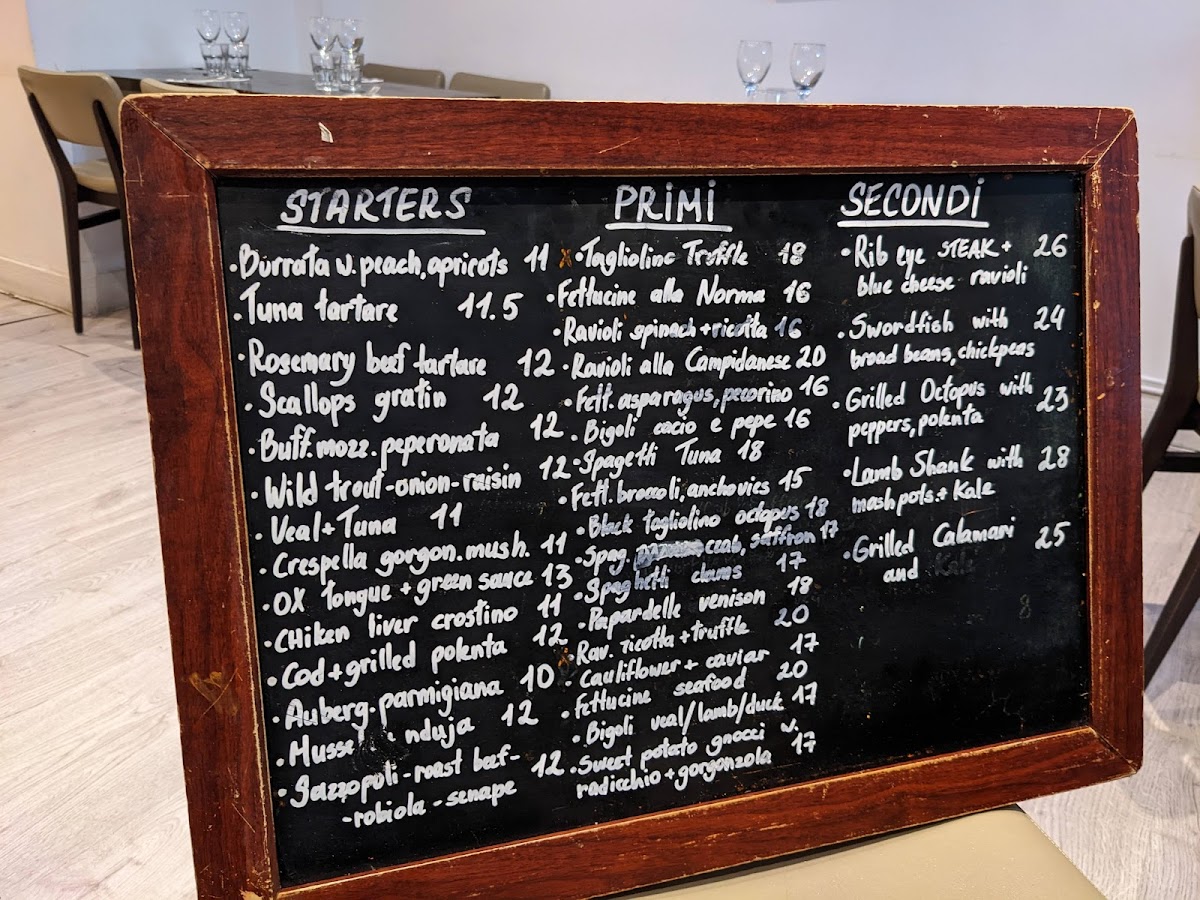 STARTERS
·Burrata w. peach, apricots 11
·Tuna tartare 11.5
·Rosemary beef tartare 12
·Scallops gratin 12
·Buff. mozz. peperonata 12
·Wild trout-onion-raisin 12
·Veal+Tuna 11
·Crespella gorgon. mush. 11
·OX Tongue + green sauce 13
·CHiken liver crostino 11
·Cod+grilled polenta 12
·Auberg. parmigiana 10
·nduja 12
·Gazzopoli-roast beef- 12
-robiola-senape
PRiMi
x ·Tagliolino Truffle 18
·Fettucine alla Norma 16
Ravioli spinach+ricotta 16
·Ravioli alla Campidanese 20
·Fett. asparagus, pecorino 16
·Bigoli cacio e pepe 16
·Spagetti Tuna 18
·Fett. broccoli, anchovies 15
·Black tagliolino octopus 18
·Spag. crab, saffron 17
·Spaghetti clams 17
·Papardelle venison 18
·Rav. ricotta+truffle 20
·Cauliflower+caviar 17
·Fettucine seafood 20
·Bigoli veal/lamb/duck 17
·Sweet potato gnocci w. 17
radicchio+gorgonzola
SECONDi
·Rib eye STEAK + 26
blue cheese ravioli
·Swordfish with 24
broad beans, chickpeas
·Grilled Octopus with 23
peppers, polenta
·Lamb Shank with 28
mash pots.+ Kale
·Grilled Calamari 25
and Kale
8